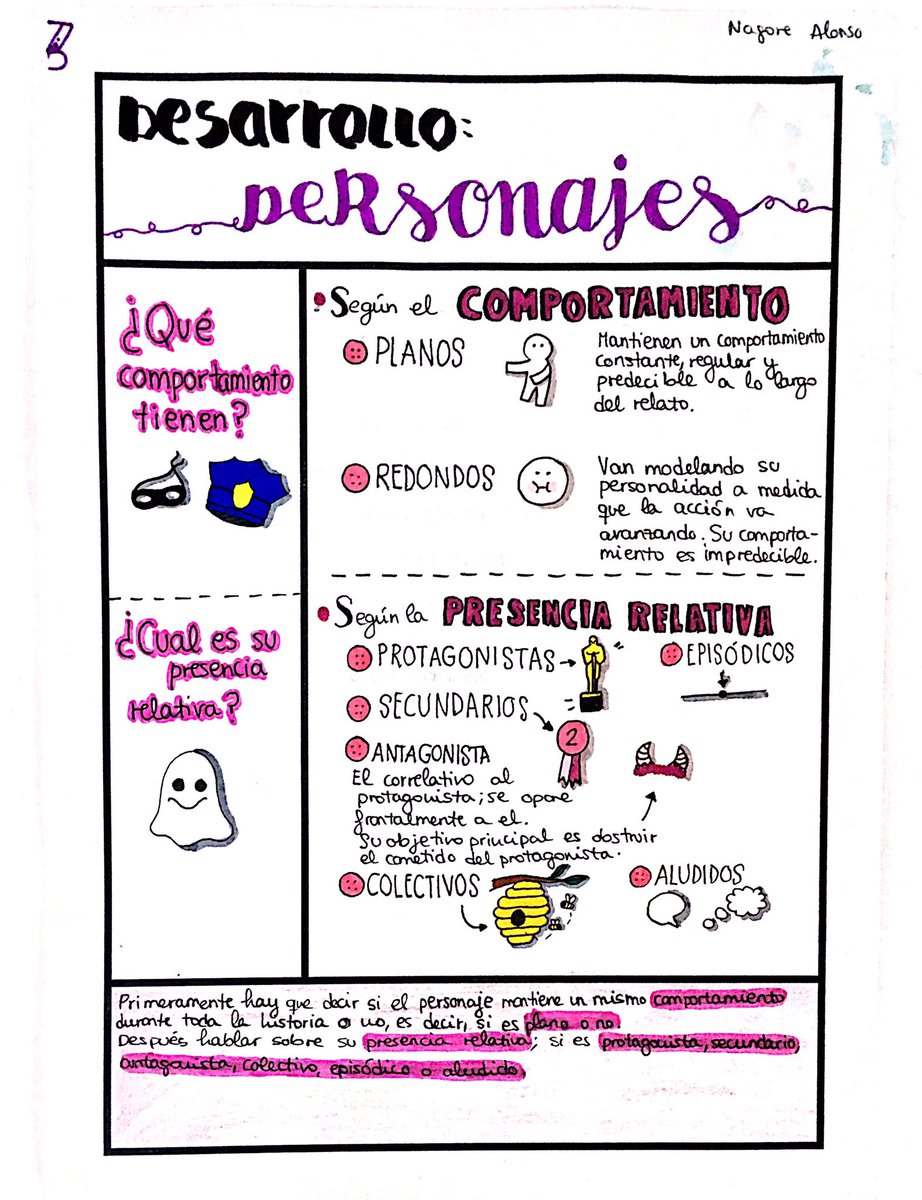 Nagore Alonso
Desarrollo:
personajes
¿Qué
comportamiento
tienen?
¿Cual es su
presencia
relativa?
• Según el COMPORTAMIENTO
PLANOS
Mantienen un comportamiento
constante, regular y
predecible a lo largo
del relato.
REDONDOS
Van modelando su
personalidad a medida
que la acción va
avanzando. Su comporta-
miento es impredecible.
• Según la PRESENCIA RELATIVA
PROTAGONISTAS
EPISÓDICOS
SECUNDARIOS
2
ANTAGONISTA
El correlativo al
protagonista; se opone
frontalmente a el.
Su objetivo principal es destruir
el cometido del protagonista.
COLECTIVOS
ALUDIDOS
Primeramente hay que decir si el personaje mantiene un mismo comportamiento
durante toda la historia o no, es decir, si es plano o no.
Después hablar sobre su presencia relativa; si es protagonista, secundario,
antagonista, colectivo, episódico o aludido.